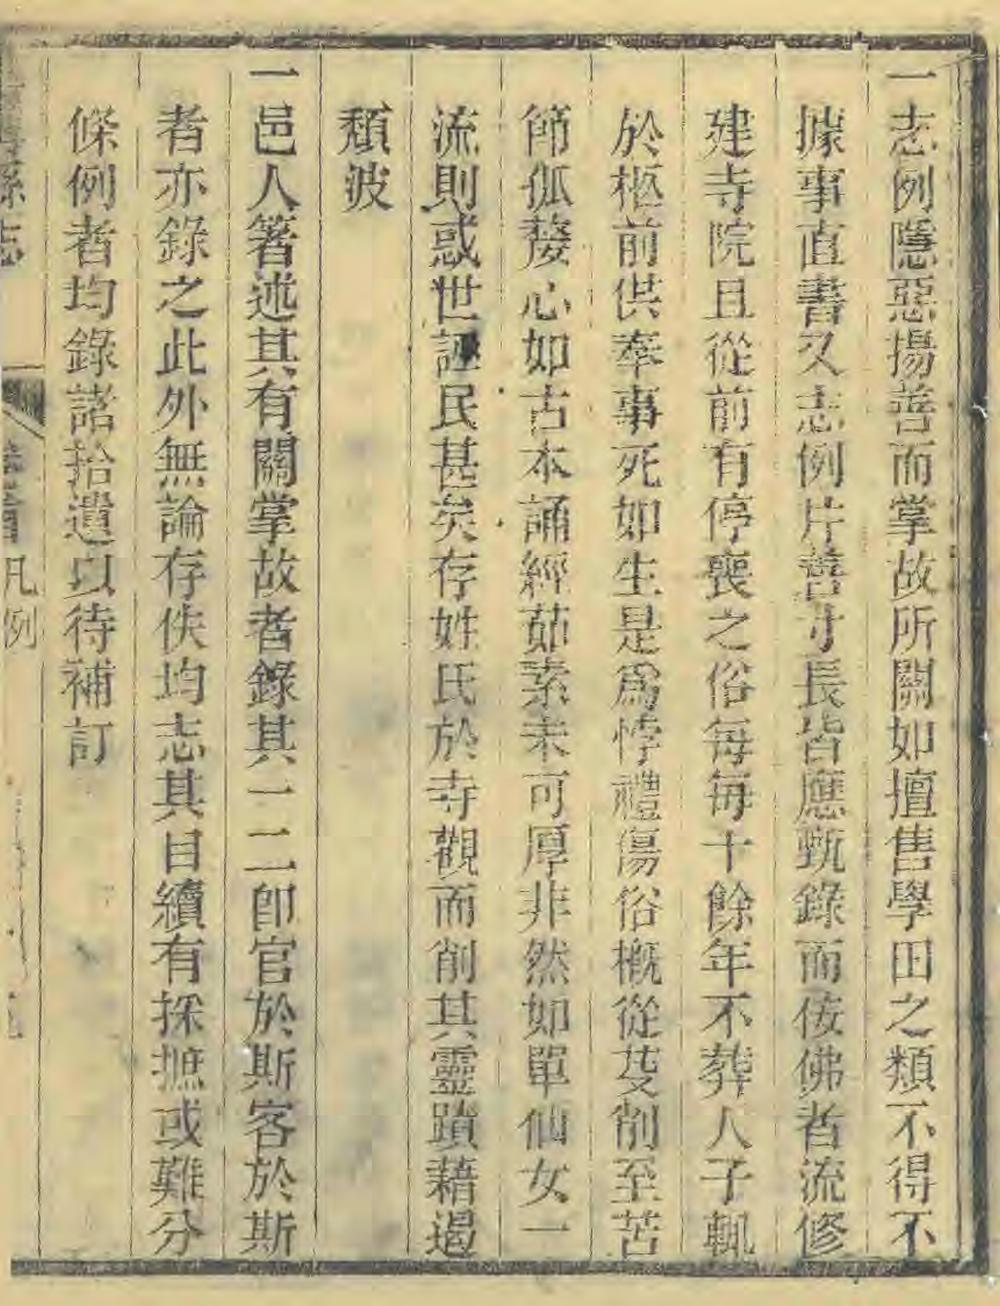 一志例隱惡揚善而掌故所關如擅售學田之類不得不
據事直書又志例片善寸長皆應甄錄而佞佛者流修
建寺院且從前有停喪之俗每每十餘年不葬人子輒
於柩前供奉事死如生是爲悖禮傷俗概從芟削至苦
節孤嫠心如古本誦經茹素未可厚非然如單仙女一
流則惑世誣民甚矣存姓氏於寺觀而削其靈蹟藉遏
頹波
一邑人箸述其有關掌故者錄其一二卽官於斯客於斯
者亦錄之此外無論存佚均志其目續有採摭或難分
條例者均錄諸拾遺以待補訂
縣志
卷首
凡例